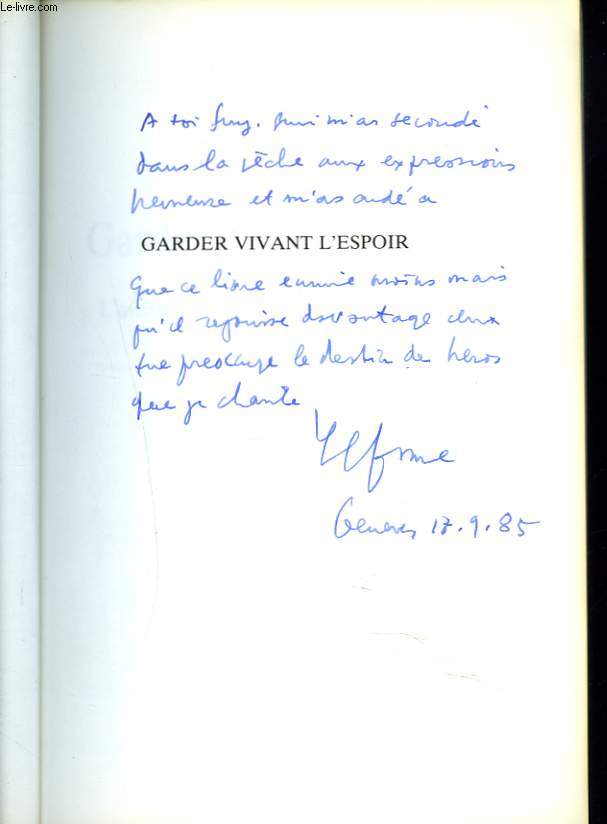 Le-livre.com
A toi qui m'as secondé
dans la pêche aux expressions
heureuse et m'as aidé a
GARDER VIVANT L'ESPOIR
Que ce livre ennuie moins mais
qu'il rejouisse davantage ceux
que preoccupe le destin de heros
que je chante
Geneve, 17.9.85